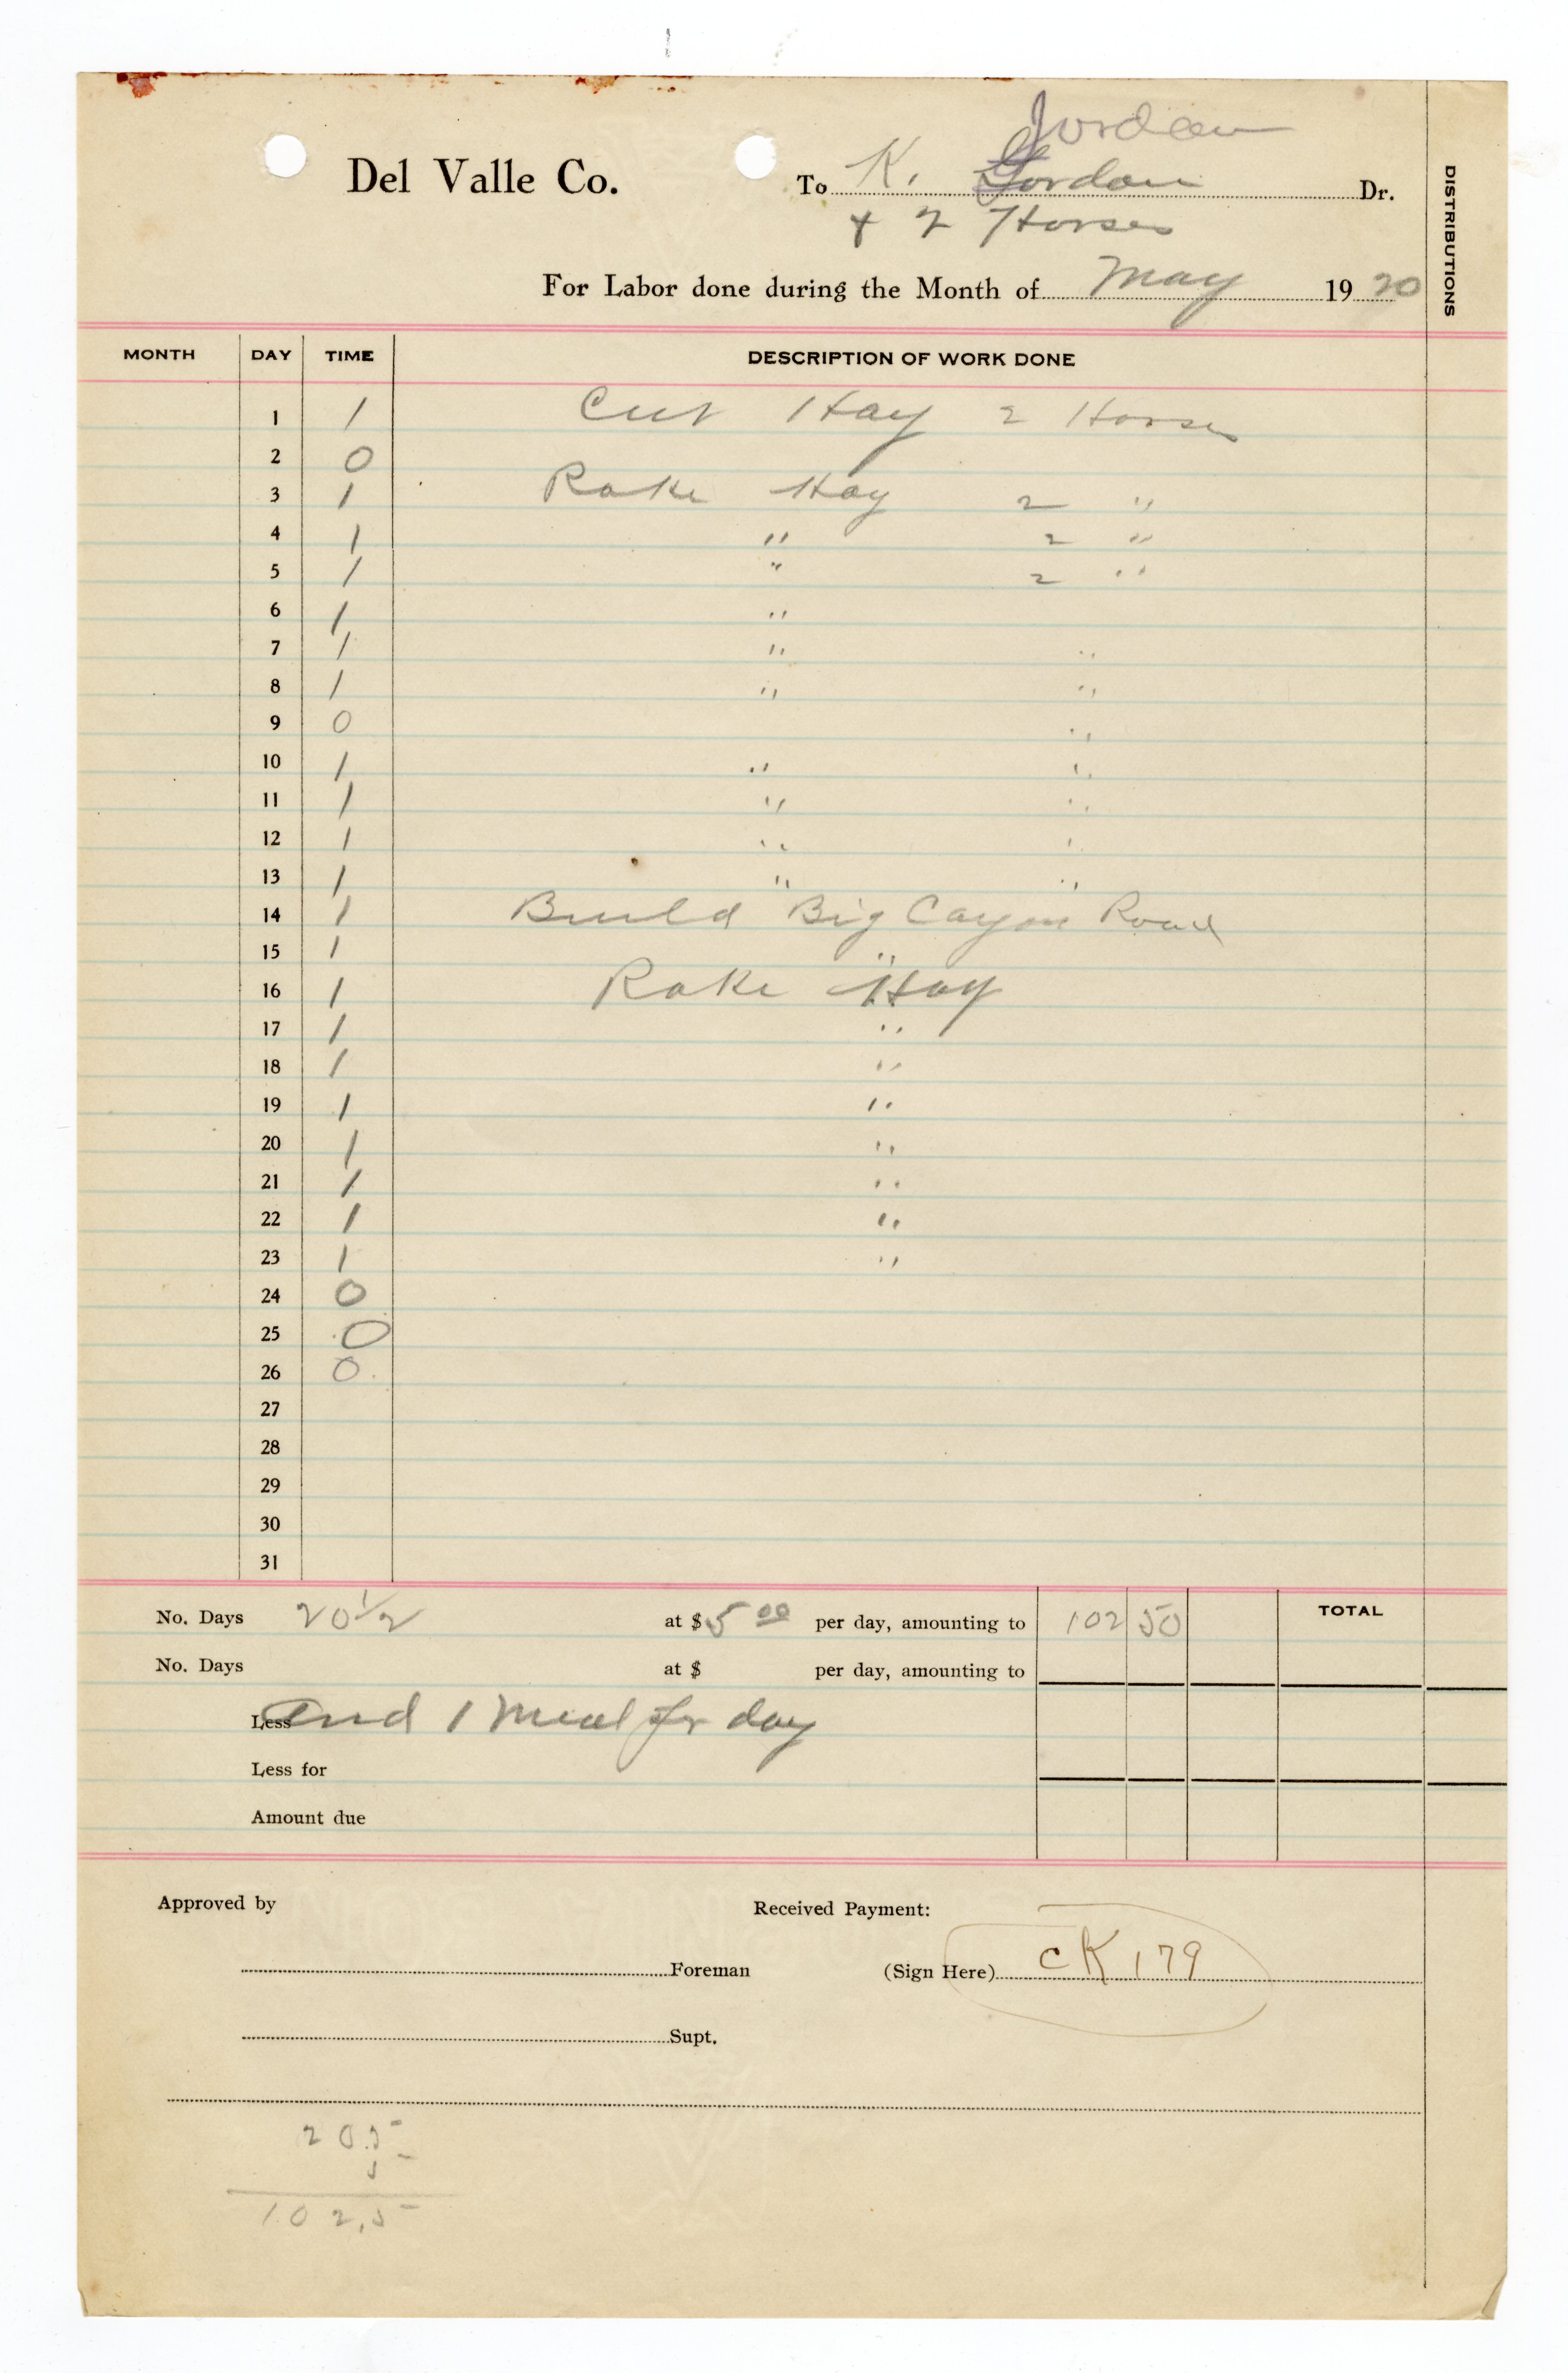 Jordan
Del Valle Co. To K. Gordon Dr.
& 2 Horses
For Labor done during the Month of May 1920
DISTRIBUTIONS
MONTH DAY TIME DESCRIPTION OF WORK DONE
1 1 Cut Hay 2 Horses
2 0
3 1 Rake Hay 2 "
4 1 " 2 "
5 1 " 2 "
6 1 "
7 1 " "
8 1 " "
9 0 "
10 1 " "
11 1 " "
12 1 " "
13 1 " "
14 1 Build Big Cayon Road
15 1 "
16 1 Rake Hay
17 1 "
18 1 "
19 1 "
20 1 "
21 1 "
22 1 "
23 1 "
24 0
25 0
26 0
27
28
29
30
31
No. Days 20 1/2 at $ 5 00 per day, amounting to 102 50 TOTAL
No. Days at $ per day, amounting to
Less and 1 Meal for day
Less for
Amount due
Approved by Received Payment:
Foreman (Sign Here) CK 179
Supt.
20.5
5
102.5